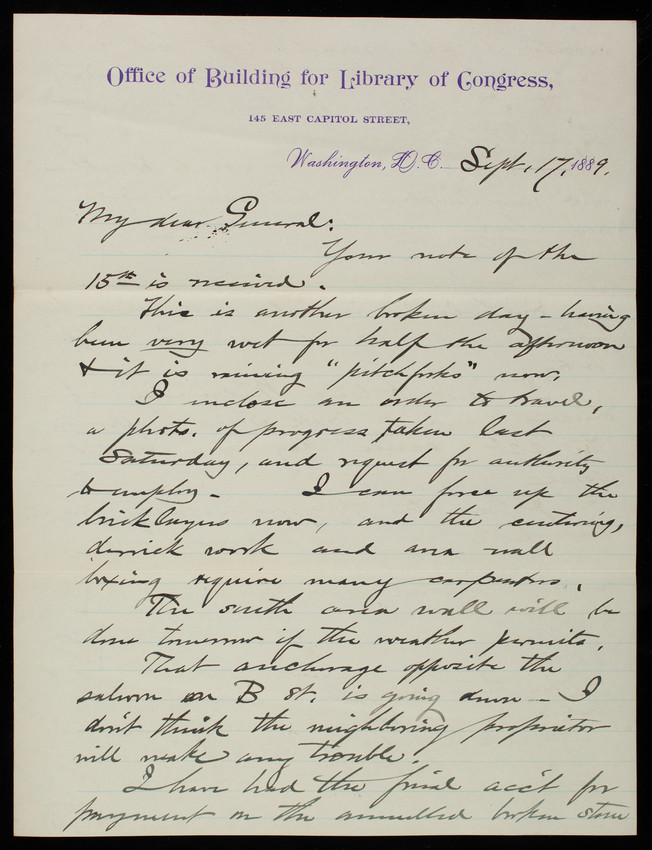 Office of Building for Library of Congress,
145 EAST CAPITOL STREET,
Washington, D. C. Sept. 17, 1889.
My dear General:
Your note of the
15th is received.
This is another broken day – having
been very wet for half the afternoon
& it is raining "pitchforks" now.
I inclose an order to travel,
a photo. of progress taken last
Saturday, and request for authority
to employ – I can force up the
bricklayers now, and the centering,
derrick work and area wall
boxing require many carpenters.
The south area wall will be
done tomorrow if the weather permits.
That anchorage opposite the
saloon on B St. is going down – I
don't think the neighboring proprietor
will make any trouble.
I have had the final acc't for
payment on the annulled broken stone